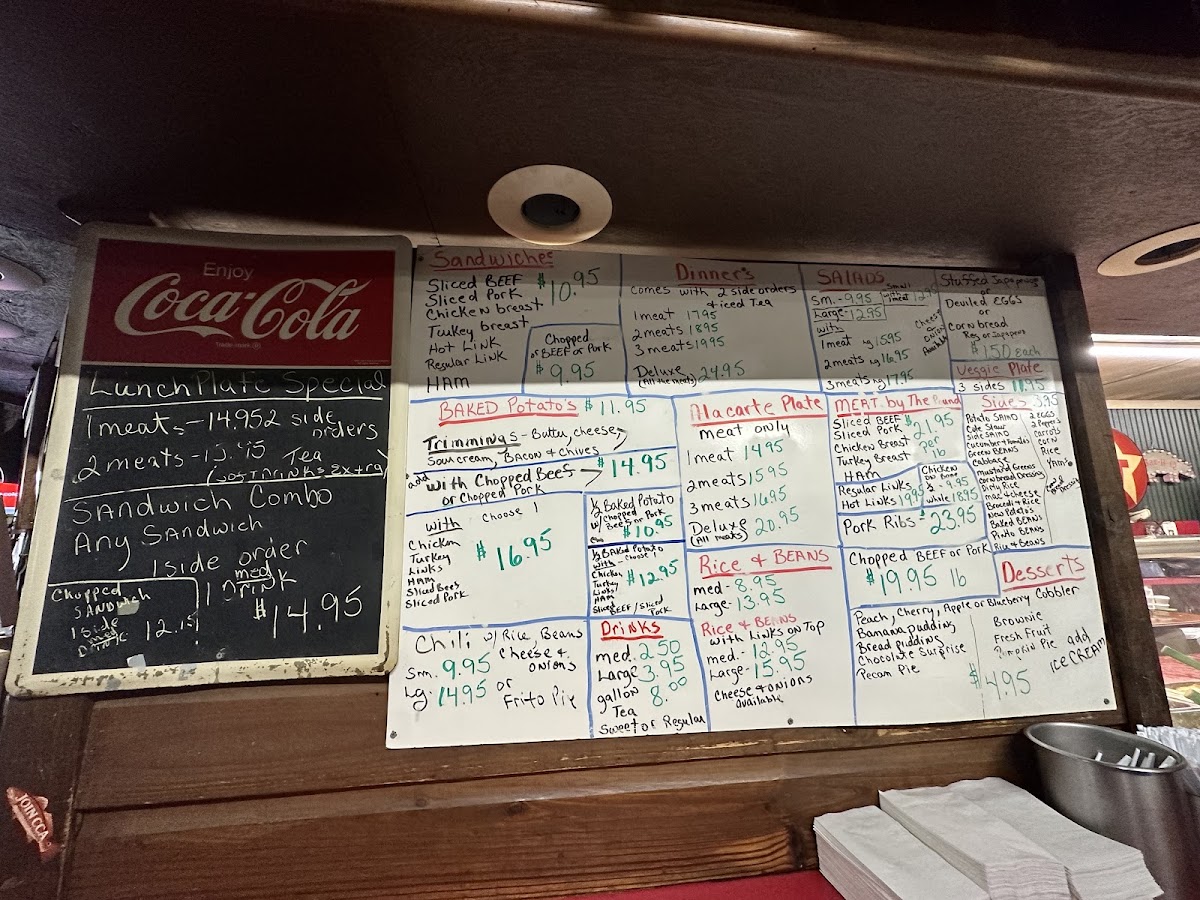 Enjoy
Coca-Cola
Trade-mark ®
Lunch Plate Special
1 meat - 14.95 2 side
orders
2 meats - Tea
Sandwich Combo
Any Sandwich
1 side order
1 med
Drink
$14.95
Chopped
Sandwich
1 side
med
Drink
Sandwiches
Sliced BEEF
Sliced Pork
Chicken breast
Turkey breast
Hot Link
Regular Link
HAM
$10.95
Chopped
BEEF or Pork
$9.95
Dinner's
comes with 2 side orders
+ iced Tea
1 meat 17.95
2 meats 18.95
3 meats 19.95
Deluxe 24.95
(All the meats)
SALADS
Sm. - 9.95
Large - 12.95
with
1 meat Lg 15.95
2 meats Lg 16.95
3 meats Lg 17.95
Cheese
or
Onions
Available
Stuffed Jalapenos
or
Deviled EGGS
or
Cornbread
Reg or Jalapeno
$1.50 each
Veggie Plate
3 sides 11.95
BAKED Potato's $11.95
Trimmings - Butter, cheese,
Sour cream, Bacon & Chives
add with Chopped Beef $14.95
or Chopped Pork
with Choose 1
Chicken
Turkey
Links
HAM
Sliced Beef
Sliced Pork
$16.95
½ Baked Potato
w/ chopped
Beef or Pork
$10.95
½ BAKED Potato
with - choose 1
Chicken
Turkey
Links
HAM
Sliced BEEF / Sliced
Pork
$12.95
Alacarte Plate
meat only
1 meat 14.95
2 meats 15.95
3 meats 16.95
Deluxe 20.95
(All meats)
MEAT by The Pound
Sliced BEEF
Sliced Pork
Chicken Breast
Turkey Breast
HAM
$21.95
per
lb
Regular Links
Hot Links 19.95
Chicken
ON Bone
½ - 9.95
whole 18.95
Pork Ribs - $23.95
Chopped BEEF or Pork
$19.95 lb
Sides 3.95
Potato SALAD
Cole Slaw
Side SALAD
Cucumber & Tomatoes
Green BEANS
Cabbage
Mustard Greens
Cornbread Dressing
Dirty Rice
Mac & cheese
Broccoli & Rice
New Potatos
Baked BEANS
Pinto BEANS
Rice & Beans
2 EGGS
2 Peppers
Carrots
Corn
Rice
YAMS
Chili w/ Rice, Beans
Cheese &
onions
Sm. 9.95
Lg. 14.95 or
Frito Pie
Drinks
med. 2.50
Large 3.95
gallon 8.00
Tea
Sweet or Regular
Rice & BEANS
med - 8.95
Large - 13.95
Rice & BEANS
with Links on Top
med. - 12.95
Large - 15.95
Cheese & onions
available
Desserts
Peach, Cherry, Apple or Blueberry Cobbler
Banana pudding
Bread pudding
Chocolate Surprise
Pecan Pie
Brownie
Fresh Fruit
Pumpkin Pie
add
ICE CREAM
$4.95
JOIN CCA